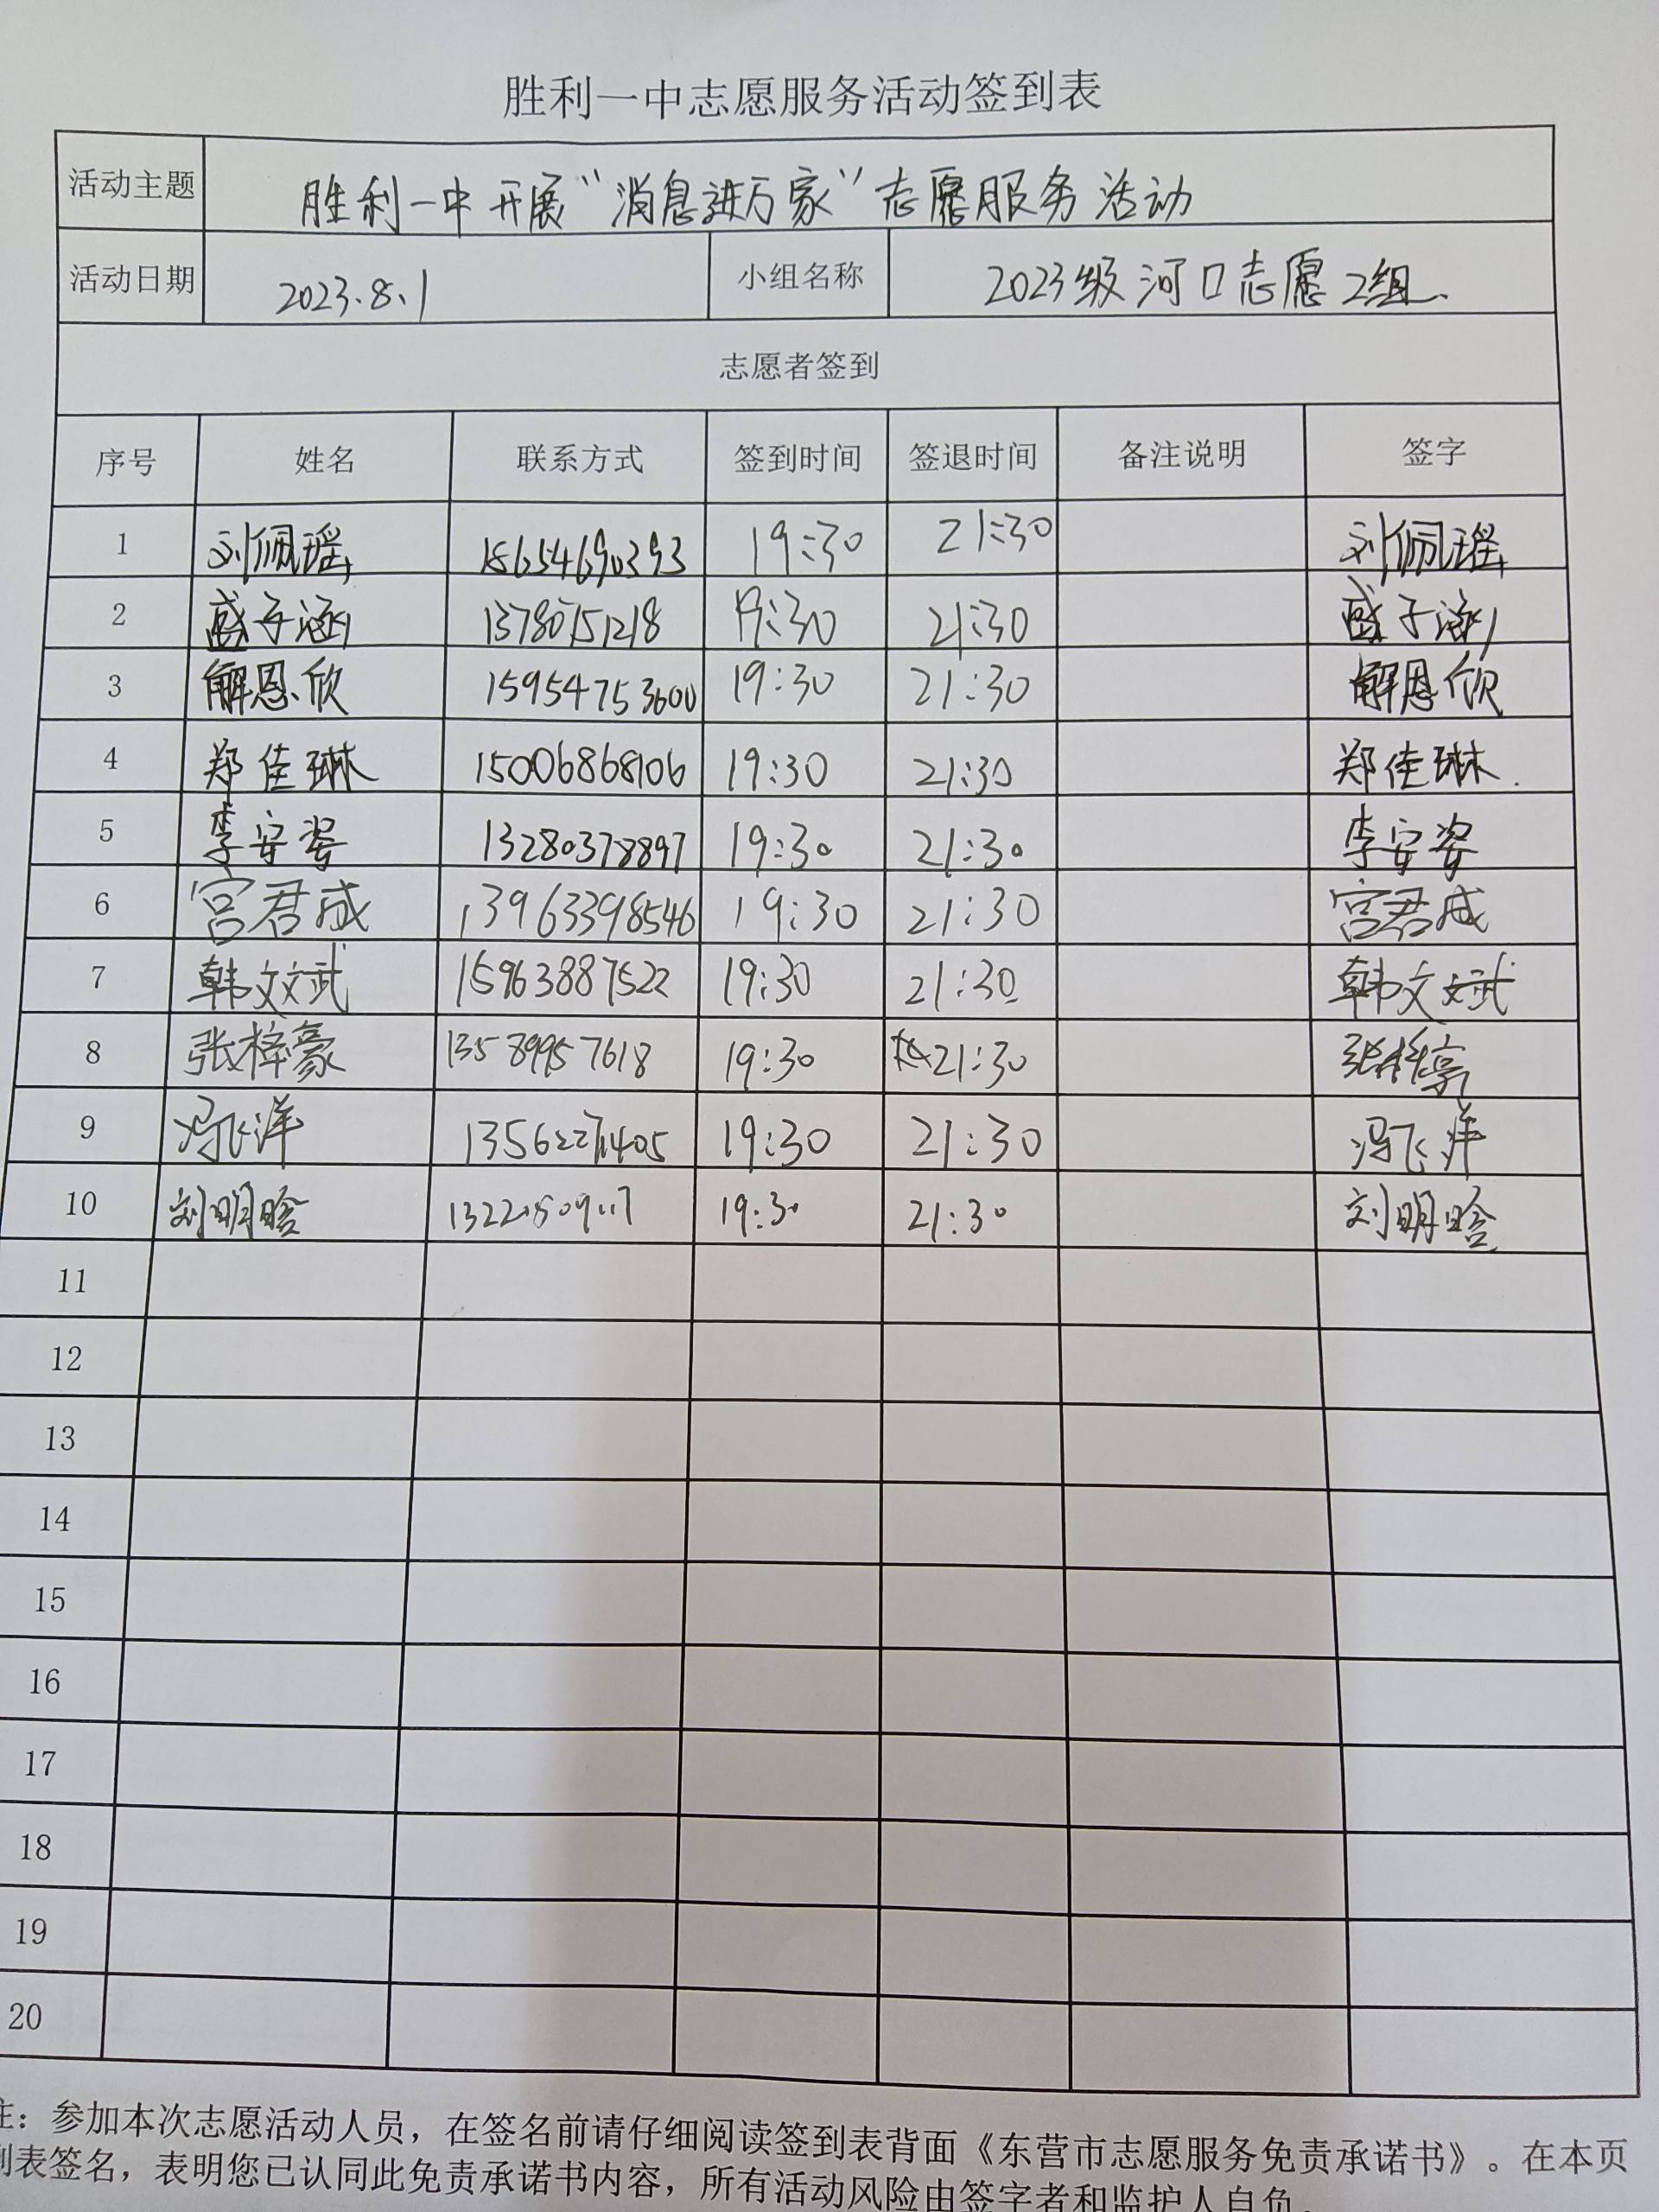 胜利一中志愿服务活动签到表
活动主题 胜利一中开展“消息进万家”志愿服务活动
活动日期 2023.8.1 小组名称 2023级河口志愿2组.
志愿者签到
序号 姓名 联系方式 签到时间 签退时间 备注说明 签字
1 刘佩瑶 15654690393 19:30 21:30 刘佩瑶
2 盛子涵 13780751218 19:30 21:30 盛子涵
3 解恩欣 15954753600 19:30 21:30 解恩欣
4 郑佳琳 15006868106 19:30 21:30 郑佳琳.
5 李安姿 13280378897 19:30 21:30 李安姿
6 宫君成 13963398546 19:30 21:30 宫君成
7 韩文斌 15963887522 19:30 21:30 韩文斌
8 张梓豪 13589957618 19:30 21:30
9 冯飞洋 13562271405 19:30 21:30 冯飞洋
10 刘明晗 19:30 21:30 刘明晗
11
12
13
14
15
16
17
18
19
20
注：参加本次志愿活动人员，在签名前请仔细阅读签到表背面《东营市志愿服务免责承诺书》。在本页
到表签名，表明您已认同此免责承诺书内容，所有活动风险由签字者和监护人自负。